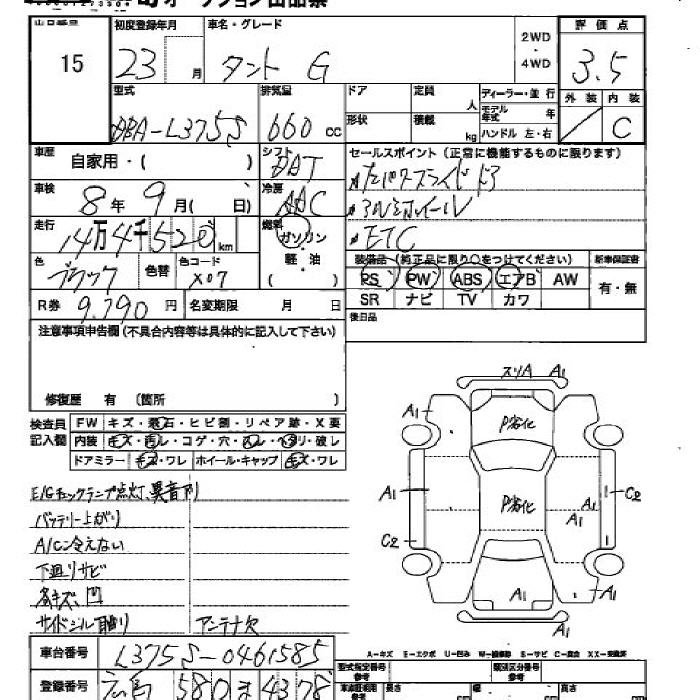 オークション出品票
出品番号 初度登録年月 車名・グレード 評価点
15 23 月 タント G 2WD・4WD 3.5
型式 排気量 ドア 定員 人 ディーラー・並行 外装 内装
DBA-L375S 660 cc 形状 積載 kg モデル年式 年 ハンドル 左・右 C
車歴 自家用・( ) シフト DAT セールスポイント (正常に機能するものに限ります)
車検 8年 9月( 日) 冷房 AAC
アルミホイール
走行 14万4千520km 燃料 ガソリン・軽・油 ( ) ETC
色 ブラック 色替 色コード X07
装備品 (純正品に限り○をつけてください) 新車保証書
PS PW ABS エアB AW 有・無
SR ナビ TV カワ
R券 9,790 円 名変期限 月 日 後日品
注意事項申告欄 (不具合内容等は具体的に記入して下さい)
修復歴 有 〔箇所 〕
検査員記入欄 FW キズ・飛石・ヒビ割・リペア跡・X要
内装 キズ・汚レ・コゲ・穴・スレ・ヘタリ・破レ
ドアミラー キズ・ワレ ホイール・キャップ キズ・ワレ
E/Gチェックランプ点灯、異音有り
バッテリー上がり
A/C冷えない
下廻りサビ
各キズ、凹
アンテナ欠
スリA A1
A1 P劣化
A1 P劣化 A1 A1 C2
C2
A1
A1
A-キズ E-エクボ U-凹み W-補修跡 S-サビ C-腐食 XX-交換済
車台番号 L375S-0461585
型式指定番号 参考 類別区分番号 参考
登録番号 広島 580 ま 4378
長さ 幅 高さ